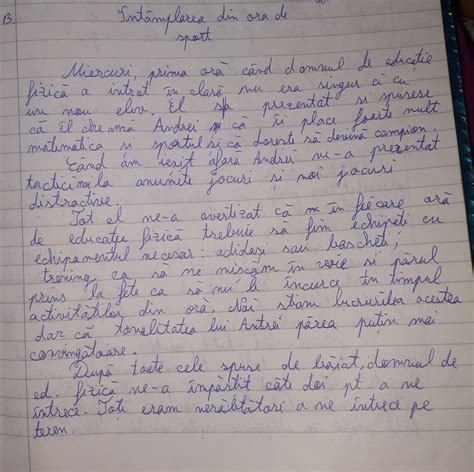 B. Întâmplarea din ora de
sport
Miercuri, prima oră când domnul de educație
fizică a intrat în clasă nu era singur ci cu
un nou elev. El s-a prezentat și spusese
că îl cheamă Andrei și că îi place foarte mult
matematica și sportul și că dorește să devină campion.
Când am ieșit afară Andrei ne-a prezentat
tacticing la anumite jocuri și noi jocuri
distractive.
Tot el ne-a avertizat că în fiecare oră
de educație fizică trebuie să fim echipați cu
echipamentul necesar: adidași sau bascheți,
trening, ca să ne mișcăm în voie și părul
prins la fete ca să nu îi încurce în timpul
activităților din oră. Noi știam lucrurile acestea
dar că tonalitatea lui Andrei părea puțin mai
convingătoare.
După toate cele spuse de băiat, domnul de
ed. fizică ne-a împărțit câte doi pt. a ne
întrece. Toți eram nerăbdători a ne întrece pe
teren.